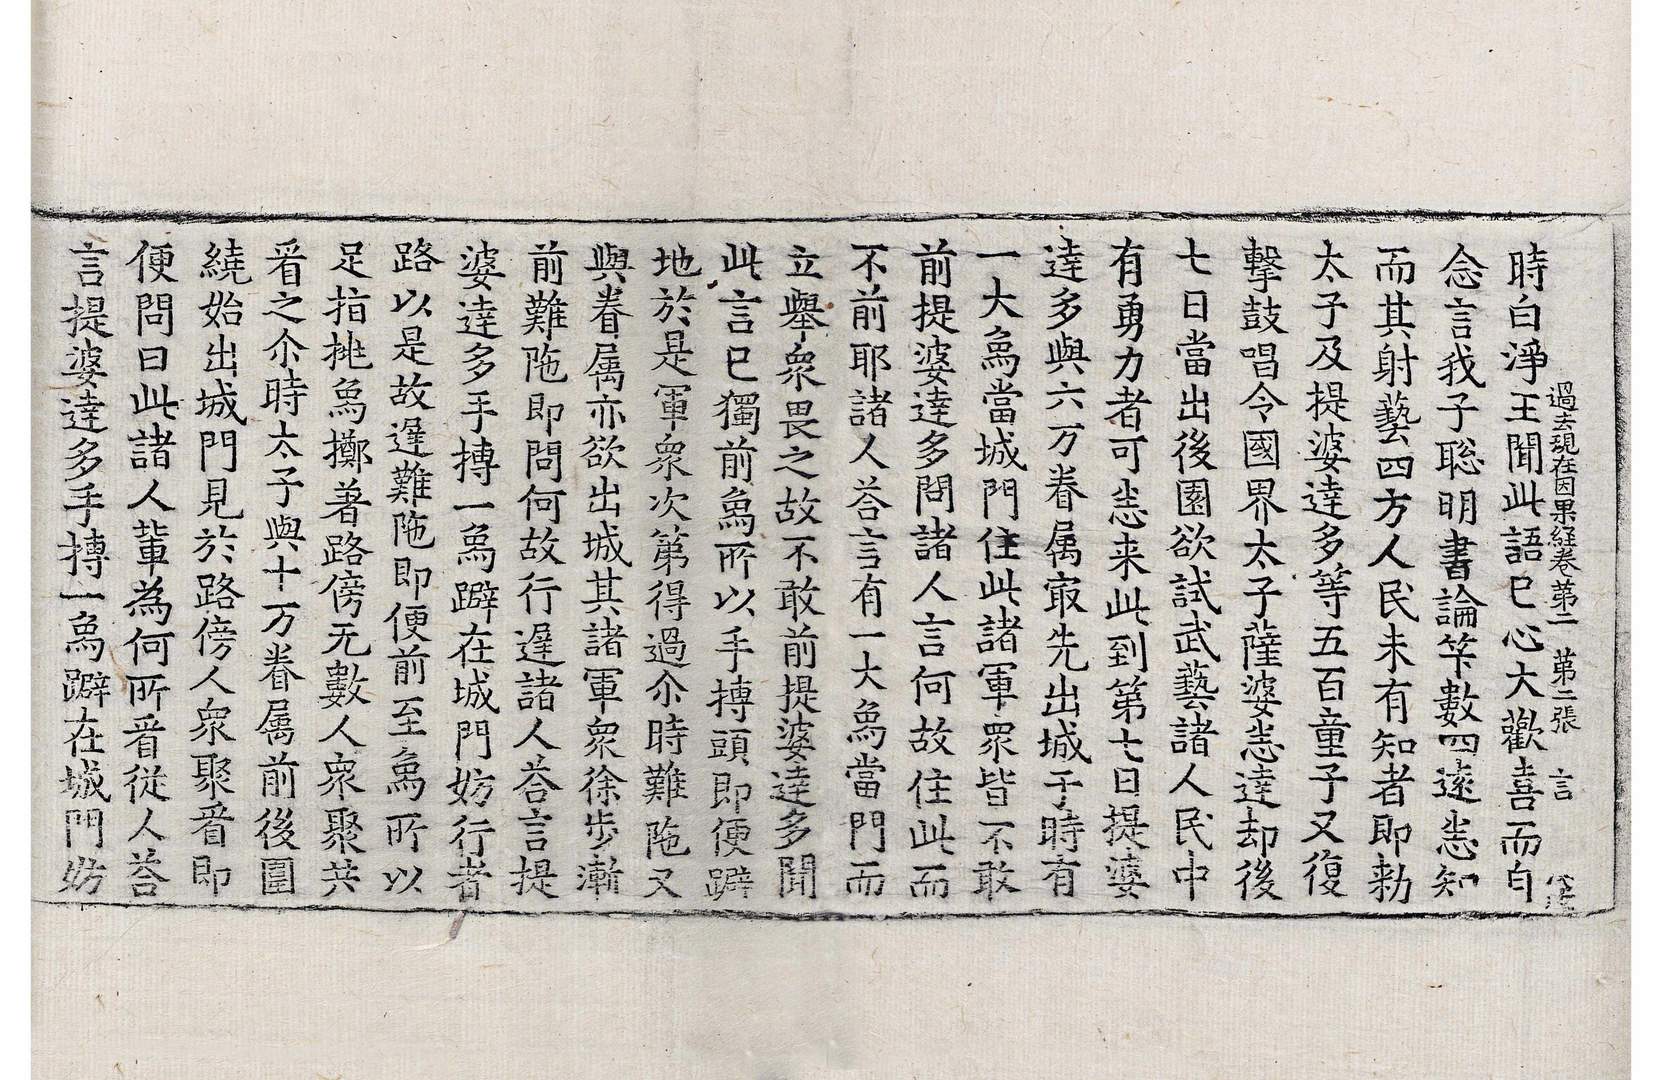 過去現在因果経巻第二 第二張 言
時白淨王聞此語已心大歡喜而自
念言我子聡明書論筭數四遠悉知
而其射藝四方人民未有知者即勅
太子及提婆達多等五百童子又復
擊鼓唱令國界太子薩婆悉達却後
七日當出後園欲試武藝諸人民中
有勇力者可悉来此到第七日提婆
達多與六万眷属㝡先出城于時有
一大象當城門住此諸軍衆皆不敢
前提婆達多問諸人言何故住此而
不前耶諸人荅言有一大象當門而
立舉衆畏之故不敢前提婆達多聞
此言已獨前象所以手搏頭即便躃
地於是軍衆次第得過尒時難陁又
與眷属亦欲出城其諸軍衆徐步漸
前難陁即問何故行遲諸人荅言提
婆達多手搏一象躃在城門妨行者
路以是故遲難陁即便前至象所以
足指挑象擲著路傍无數人衆聚共
看之尒時太子與十万眷属前後圍
繞始出城門見於路傍人衆聚看即
便問曰此諸人輩為何所看從人荅
言提婆達多手搏一象躃在城門妨